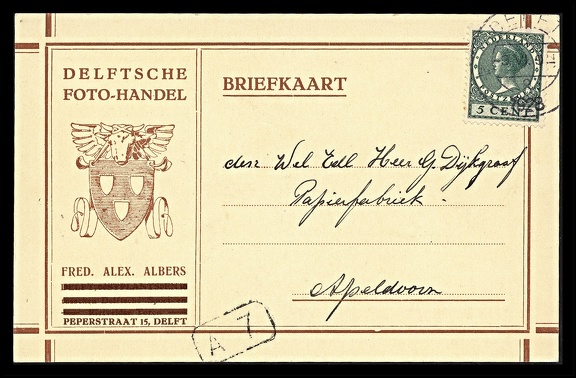 DELFTSCHE
FOTO-HANDEL
FRED. ALEX. ALBERS
PEPERSTRAAT 15, DELFT
BRIEFKAART
NEDERLAND
5 CENT
1928
den Wel Edl Heer G. Dijkgraaf
Papierfabriek.
Apeldoorn
A 7